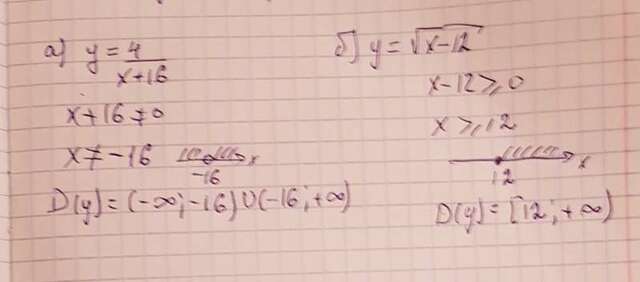 а) y = 4/(x+16)
x+16 ≠ 0
x ≠ -16
x
-16
D(y) = (-∞; -16) ∪ (-16; +∞)
б) y = √(x-12)
x-12 ≥ 0
x ≥ 12
x
12
D(y) = [12; +∞)